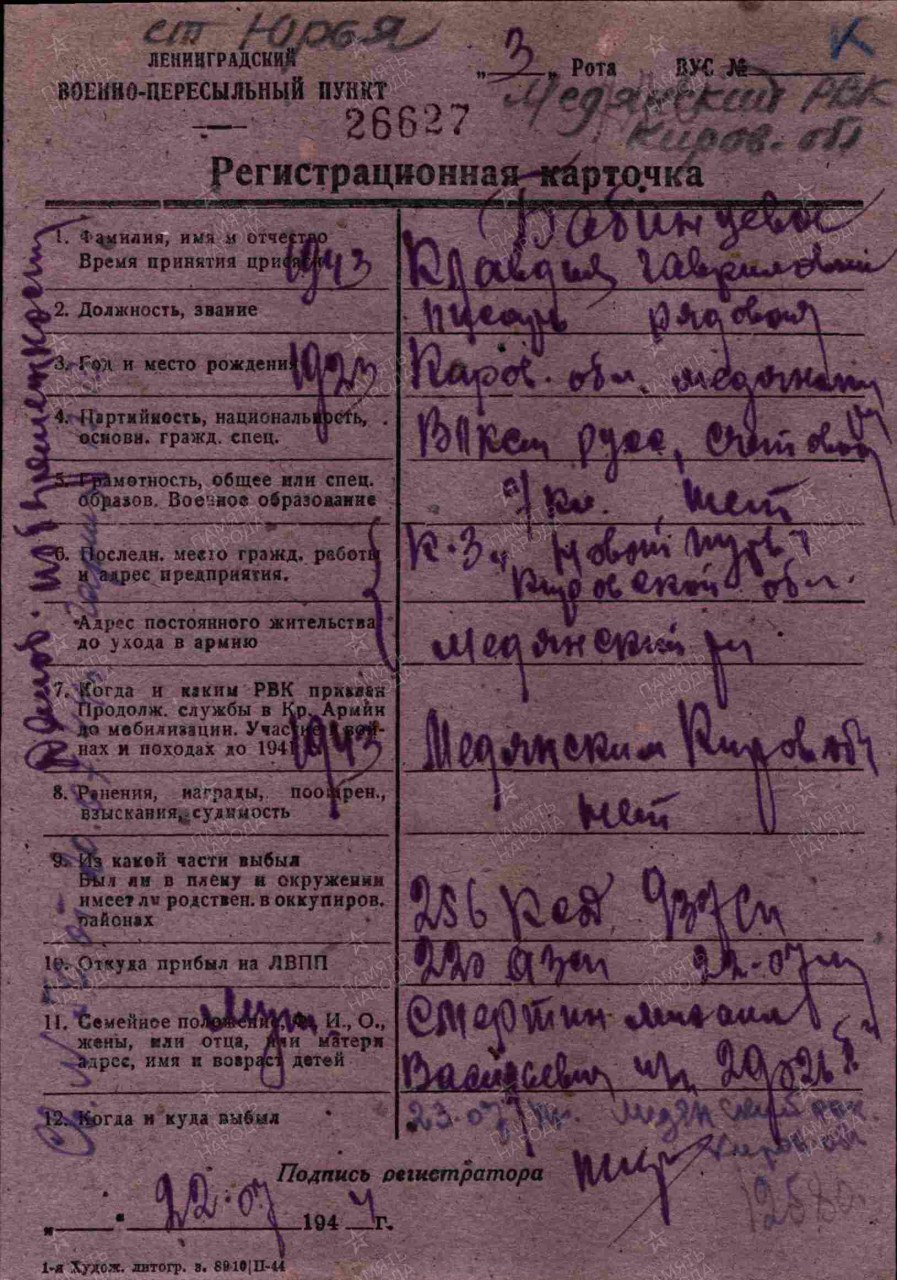 ст Юрья
ЛЕНИНГРАДСКИЙ
ВОЕННО-ПЕРЕСЫЛЬНЫЙ ПУНКТ
26627
„ 3 „ Рота ВУС № К
Медянский РВК
Киров. обл
Регистрационная карточка
1. Фамилия, имя и отчество
Время принятия присяги 1943
Бабинцева
Клавдия Гавриловна
2. Должность, звание
писарь рядовая
3. Год и место рождения 1923
Киров. обл.
4. Партийность, национальность,
основн. гражд. спец.
русс,
5. Грамотность, общее или спец.
образов. Военное образование
7 кл. нет
6. Последн. место гражд. работы
и адрес предприятия.
К-з „Новый путь"
Кировской обл.
Адрес постоянного жительства
до ухода в армию
Медянский
7. Когда и каким РВК призван
Продолж. службы в Кр. Армии
до мобилизации. Участие в вой-
нах и походах до 1941 1943
Медянским Киров обл
8. Ранения, награды, поощрен.,
взыскания, судимость
нет
9. Из какой части выбыл
Был ли в плену и окружении
имеет ли родствен. в оккупиров.
районах
256
10. Откуда прибыл на ЛВПП
220 22.07
11. Семейное положение, Ф. И., О.,
жены, или отца, или матери
адрес, имя и возраст детей
Муж
Смертин Михаил
Васильевич
12. Когда и куда выбыл
23.07 Медянский рвк
Киров обл
Подпись регистратора
„ 22.07 1944 г.
1-я Худож. литогр. з. 8910|II-44